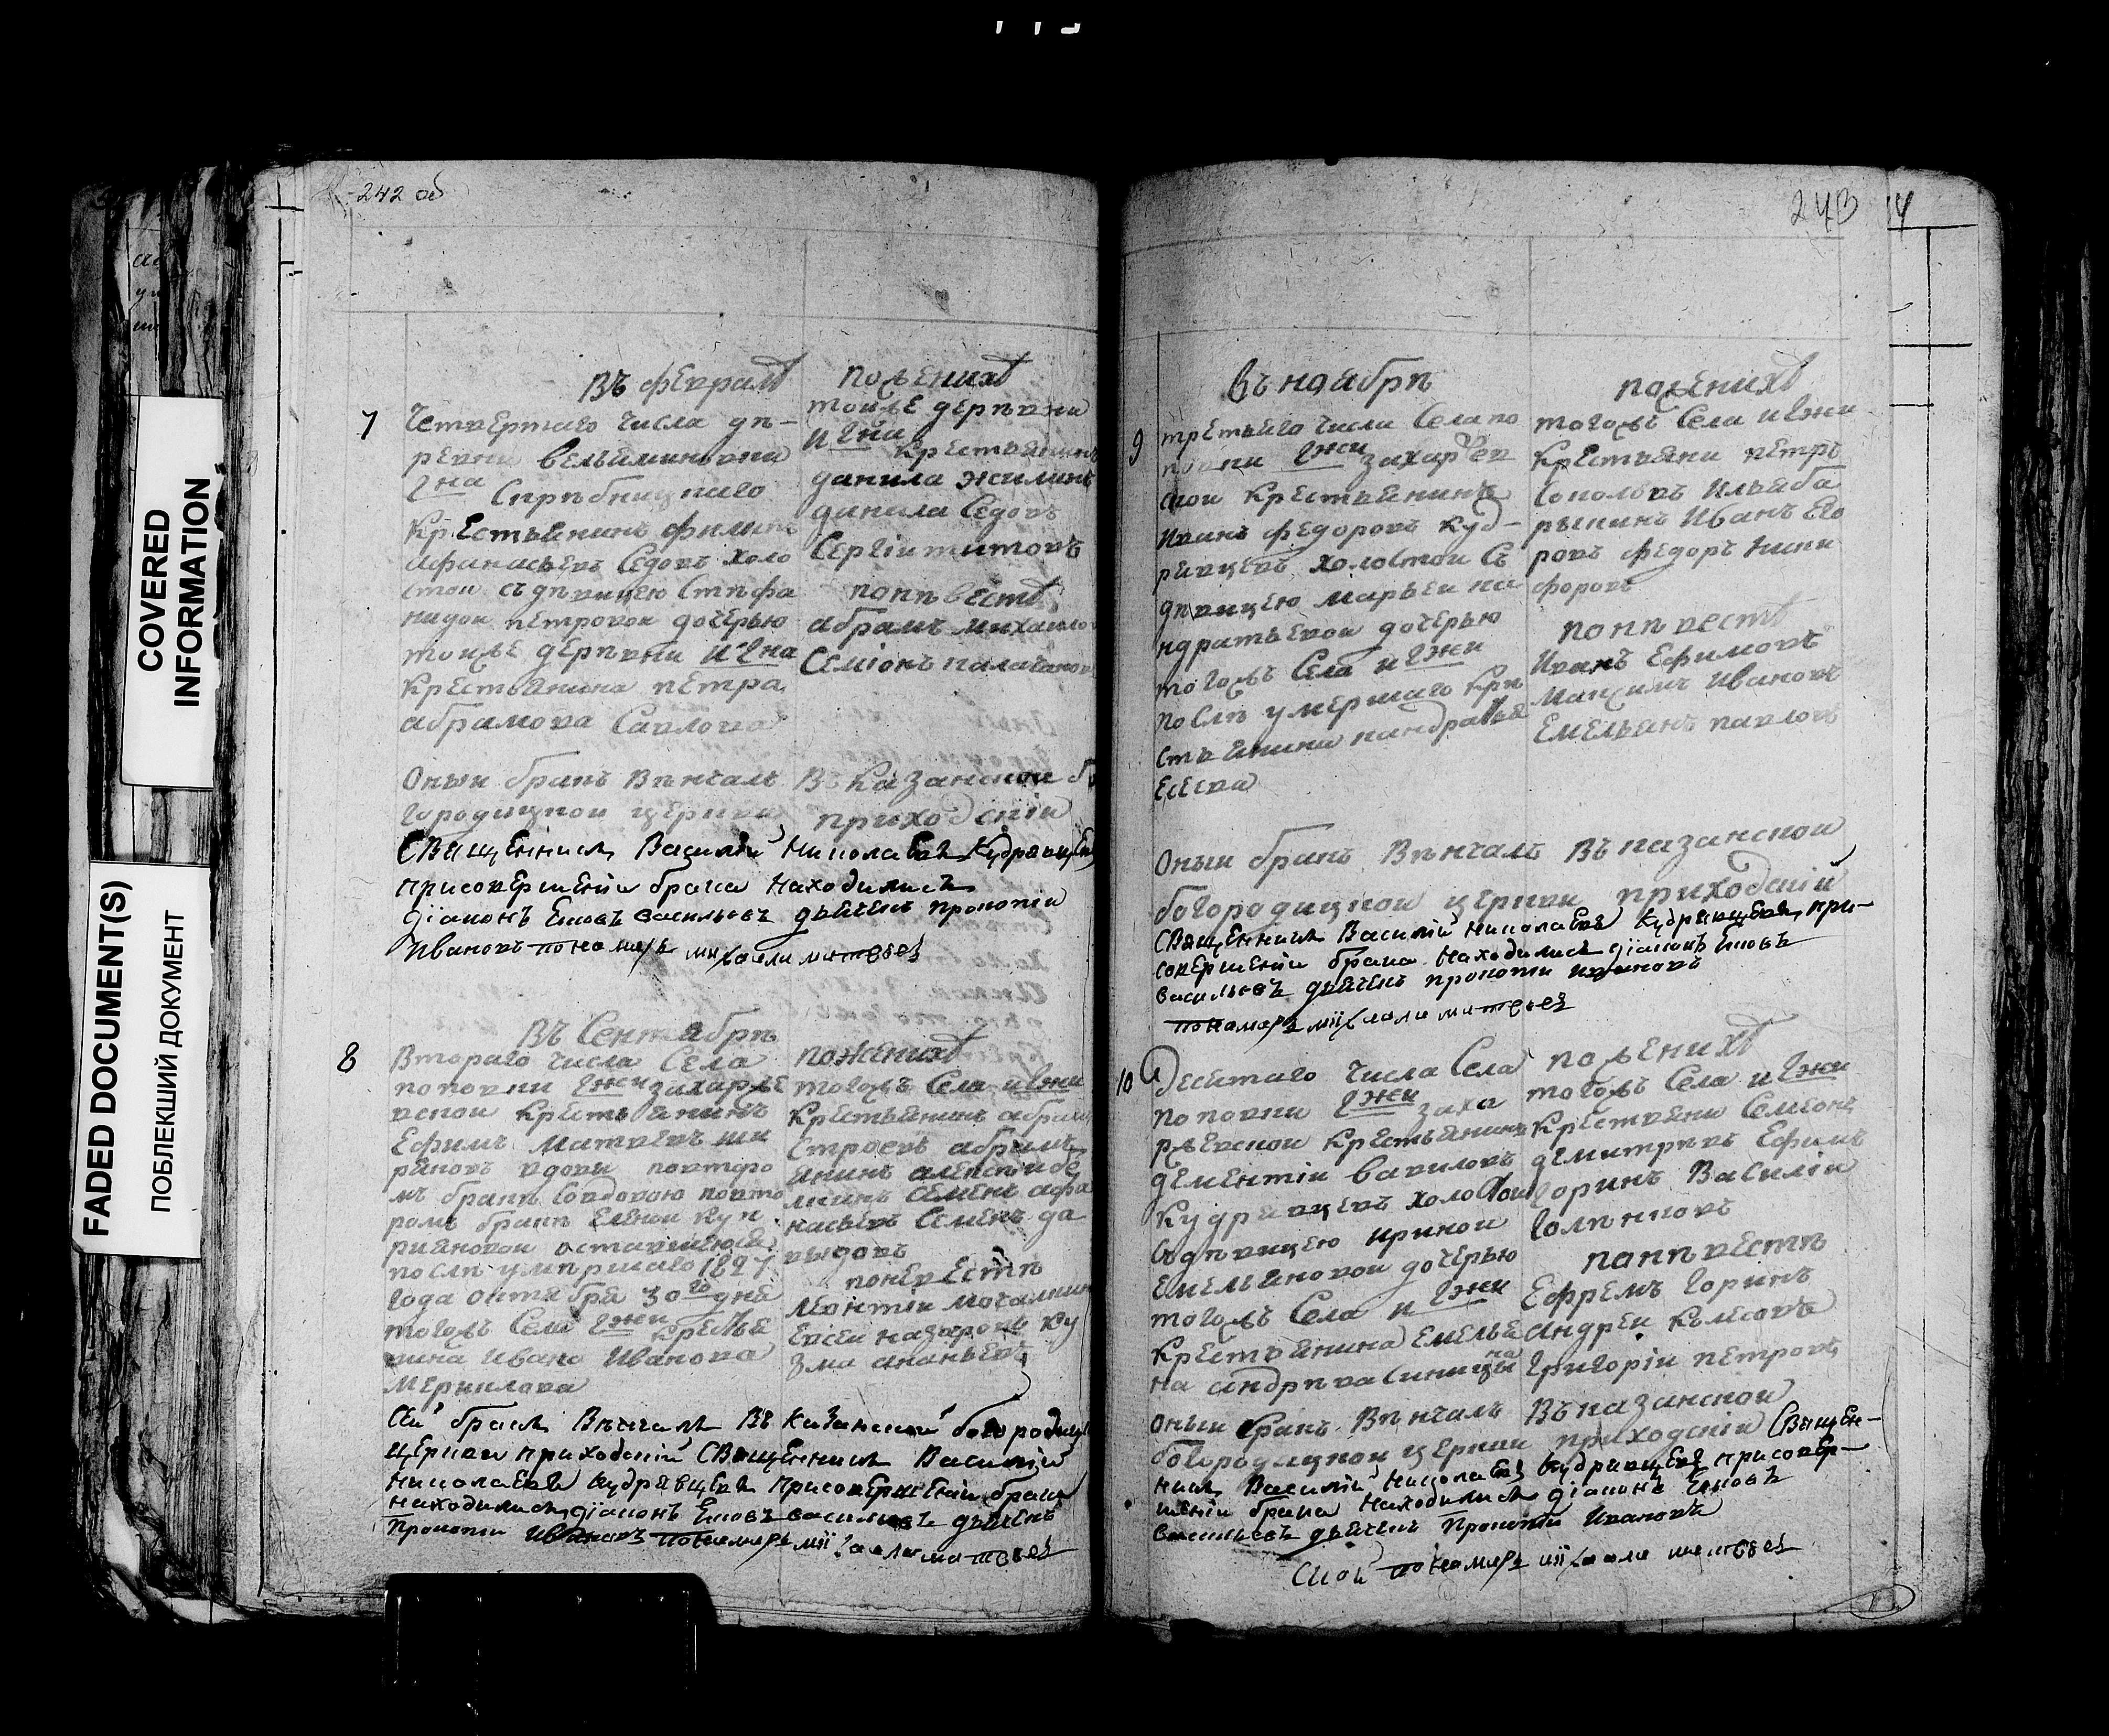 242 об
въ февралѣ
7
Четвертаго Числа дѣ-
ревни Вельяминовки
Гна
Крестьянинъ Филипъ
Афанасьевъ Седовъ холо
стои съ дѣвицею Стѣфа
нидои петровои дочерью
тоиже деревни И Гна
Крестьянина петра
абрамова Савлова
поженихѣ
тоиже деревни
И Гна Крестьянинъ
данила жилинъ
данила Седовъ
Сергіи титовъ
поневестѣ
абрамъ михаило
Семіонъ
Оныи бракъ Вѣнчалъ Въ Казанскои бо
городицкои церкви приходскіи
Священникъ Василій Николаевъ Кудрявцевъ
присовершеніи брака Находились
діаконъ Іовъ васильевъ дьячекъ прокопіи
Ивановъ пономарь михаилъ матвеев
8
Въ Сентябрѣ
Втораго Числа Села
поповки Гжи захарье
вскои Крестьянинъ
Ефимъ Матвевъ ши
ряковъ вдовы повторо
мъ бракѣ Совдовою повто
ромъ бракѣ Еленои Куп
рияновои оставшеюся
послѣ умѣршаго 1827
года октября 30го дня
тогожъ Села Гжи Крестья
нина Ивана Иванова
Меркилова
поженихѣ
тогожъ Села и Гжи
Крестьянинъ абрамъ
Строевъ абрамъ
Семенъ афа
насьевъ Семенъ да
выдовъ
поневестѣ
Леонтіи мочалкин
Евсеи назаровъ Ку
зма ананьевъ
Сей бракъ Вѣнчалъ Въ Казанской богородицк
церкви приходскій Священникъ Василій
Николаевъ Кудрявцевъ присовершеніи брака
находились діаконъ Іовъ васильевъ дьячекъ
Прокопіи Ивановъ пономарь михаилъ матвеев
243
въ ноябрѣ
9
третьяго числа Села по
повки Гжи захарьев
скои Крестьянинъ
Иванъ Федоровъ Куд-
рявцевъ холостои Съ
дѣвицею марьеи ка
ндратьевои дочерью
тогожъ Села и Гжи
послѣ умершаго Кре
стьянина кандратья
Есева
поженихѣ
тогожъ Села и Гжи
Крестьяни петръ
Соколовъ Илья ба
рыкинъ Иванъ Его
ровъ федоръ Ники
форовъ
поневестѣ
Иванъ Ефимовъ
Максимъ Ивановъ
Емельянъ павловъ
Оныи бракъ Вѣнчалъ Въ казанскои
богородицкои церкви приходскій
Священникъ Василій Николаевъ Кудрявцевъ при-
совершеніи брака Находились діаконъ Іовъ
васильевъ дьячекъ прокопіи ивановъ
пономарь михаилъ матвеев
10
Десятаго Числа Села
поповки Гжи заха
рьевскои Крестьянинъ
дементіи вавиловъ
Кудрявцевъ холостои
Съдѣвицею ириною
Емельяновои дочерью
тогожъ Села и Гжи
Крестьянина Емелья
на андрѣева Синицына
поженихѣ
тогожъ Села и Гжи
Крестьяни Семеонъ
демитрѣвъ Ефимъ
горинъ Василіи
поневестѣ
Ефремъ горинъ
андреи
григоріи петровъ
Оныи бракъ Вѣнчалъ Въ казанскои
богородицкои церкви приходскіи Священ-
никъ Василій Николаевъ Кудрявцевъ присовер-
шеніи брака Находились діаконъ Іовъ
васильевъ дьячекъ Прокопіи Ивановъ
пономарь михаилъ матвеев
COVERED
INFORMATION
FADED DOCUMENT(S)
ПОБЛЕКШИЙ ДОКУМЕНТ